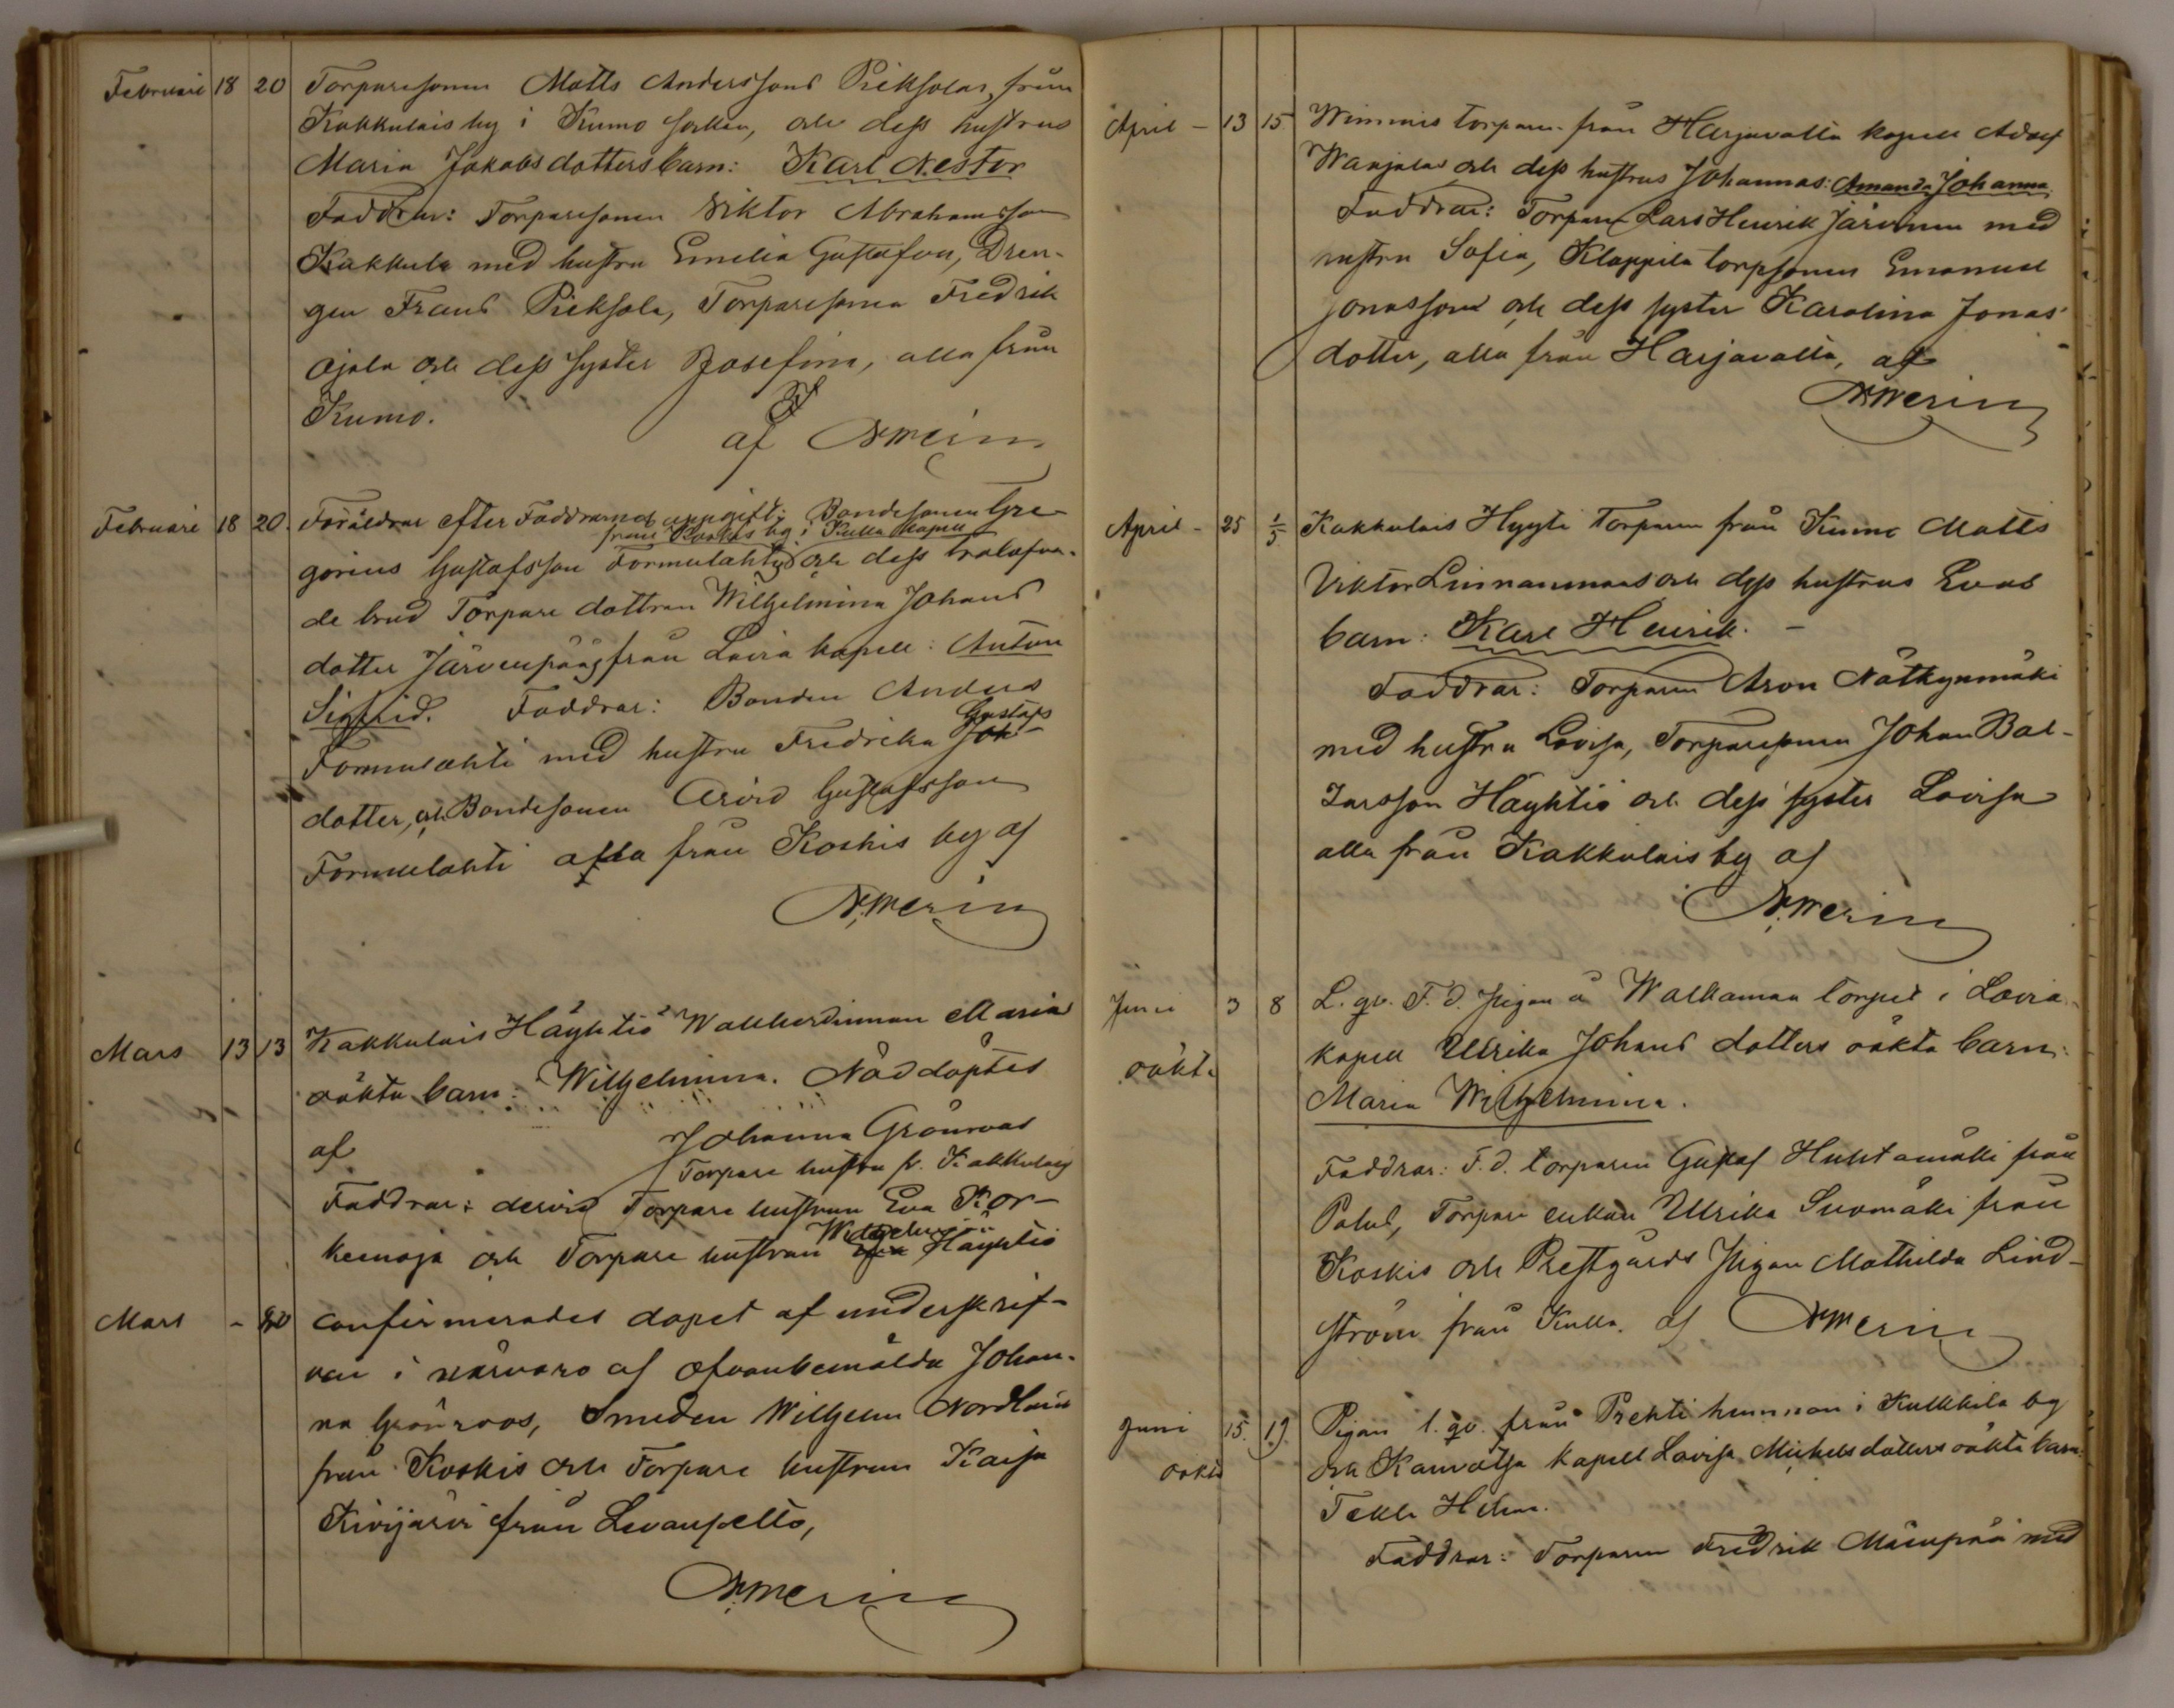 Februari 18 20 Torparesonen Matts Anderssons Pieksolas, från
Kakkulais by i Kumo socken, och dess hustrus
Maria Jakobsdotters barn: Karl Nestor
Faddrar: Torparesonen Viktor Abrahamsson
Kakkula med hustru Emilia Gustafson, Dren-
gen Frans Pieksola, Torparesonen Fredrik
Ojala och dess syster Josefina, alla från
Kumo.
af N. Merin
Februari 18 20. Föräldrar efter Faddrarnas uppgift: Bondesonen Gre-
från Koskis by i Kulla kapell
gorius Gustafsson Formulahtis och dess trolofva-
de brud Torpare dottren Wilhelmina Johans
dotter Järvenpääs från Lavia kapell: Anton
Sigfrid. Faddrar: Bonden Anders
Gustafs
Formulahti med hustru Fredrika Joh-
dotter, och Bondesonen Arvid Gustafsson
Formulahti alla från Koskis by af
N. Merin
Mars 13 13 Kakkulais Häyhtiö Wallherdinnan Marias
oäkta barn: Wilhelmina. Nöddöptes
af Johanna Grönroos
Torpare hustru fr. Kakkulais
Faddrar: dervid Torpare hustrun Eva Kor-
Wilhelmina
keenoja och Torpare hustrun Eva Häyhtiö
Mars - 20 confirmerades dopet af underskrif-
ven i närvaro af ofvanbemälda Johan-
na Grönroos, Smeden Wilhelm Nordlund
från Koskis och Torpare hustrun Kaisa
Kivijärvi från Levanpelto,
N. Merin
April - 13 15. Wimmis torparen från Harjavalta kapell Adolf
Wanjalas och dess hustrus Johannas: Amanda Johanna.
Faddrar: Torparen Lars Henrik Järvinen med
hustru Sofia, Klappila torpsonen Emanuel
Jonasson och dess syster Karolina Jonas-
dotter, alla från Harjavalta, af
N. Merin
April - 25 1/5 Kakkulais Hyyti Torparen från Kumo Matts
Viktor Linnanmaas och dess hustrus Evas
barn: Karl Henrik. -
Faddrar: Torparen Aron Nätkynmäki
med hustru Lovisa, Torparesonen Johan Bal-
tarsson Häyhtiö och dess syster Lovisa
alla från Kakkulais by af
N. Merin
Juni 3 8 L. qv. F. d. pigan å Walkaman torpet i Lavia
oäkta
kapell Ulrika Johans dotters oäkta barn:
Maria Wilhelmina.
Faddrar: F. d. torparen Gustaf Huhtamäki från
Palus, Torpare enkan Ulrika Suomäki från
Koskis och Prestgårds pigan Mathilda Lind-
ström från Kulla. af N. Merin
Juni 15. 19. Pigan l. qv. från Prehti hemman i Kulkkila by
oäkta
och Kauvatsa kapell Lovisa Mickelsdotters oäkta barn:
Tekla Helena.
Faddrar: Torparen Fredrik Mäenpää med